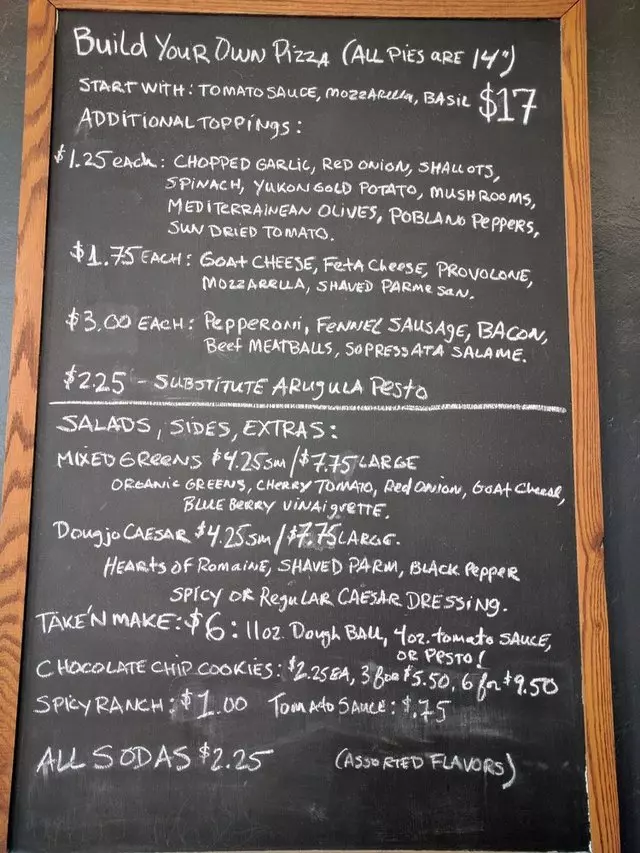 Build Your Own Pizza (All Pies are 14")
START WITH: TOMATO SAUCE, MOZZARella, BASIL $17
ADDITIONAL TOPPINGS:
$1.25 each: CHOPPED GARLIC, RED ONION, SHALLOTS,
SPINACH, YUKON GOLD POTATO, MUSHROOMS,
MEDITERRAINEAN OLIVES, POBLANO PEPPERS,
SUN DRIED TOMATO.
$1.75 EACH: GOAT CHEESE, FETA CHEESE, PROVOLONE,
MOZZARELLA, SHAVED PARMESAN.
$3.00 EACH: Pepperoni, FENNEL SAUSAGE, BACON,
Beef MEATBALLS, SOPRESSATA SALAME.
$2.25 - SUBSTITUTE ARUGULA Pesto
SALADS, SIDES, EXTRAS:
MIXED GREENS $4.25 SM / $7.75 LARGE
ORGANIC GREENS, CHERRY TOMATO, Red ONION, GOAT Cheese,
BLUEBERRY VINAIGRETTE.
Dougjo CAESAR $4.25 SM / $7.75 LARGE.
HEARTS of Romaine, SHAVED PARM, BLACK Pepper
SPICY OR Regular CAESAR DRESSING.
TAKE'N MAKE: $6: 11oz. Dough BALL, 4oz. tomato SAUCE,
OR PESTO!
CHOCOLATE CHIP COOKIES: $2.25 EA, 3 for $5.50, 6 for $9.50
SPICY RANCH: $1.00 Tomato SAUCE: $.75
ALL SODAS $2.25 (ASSORTED FLAVORS)